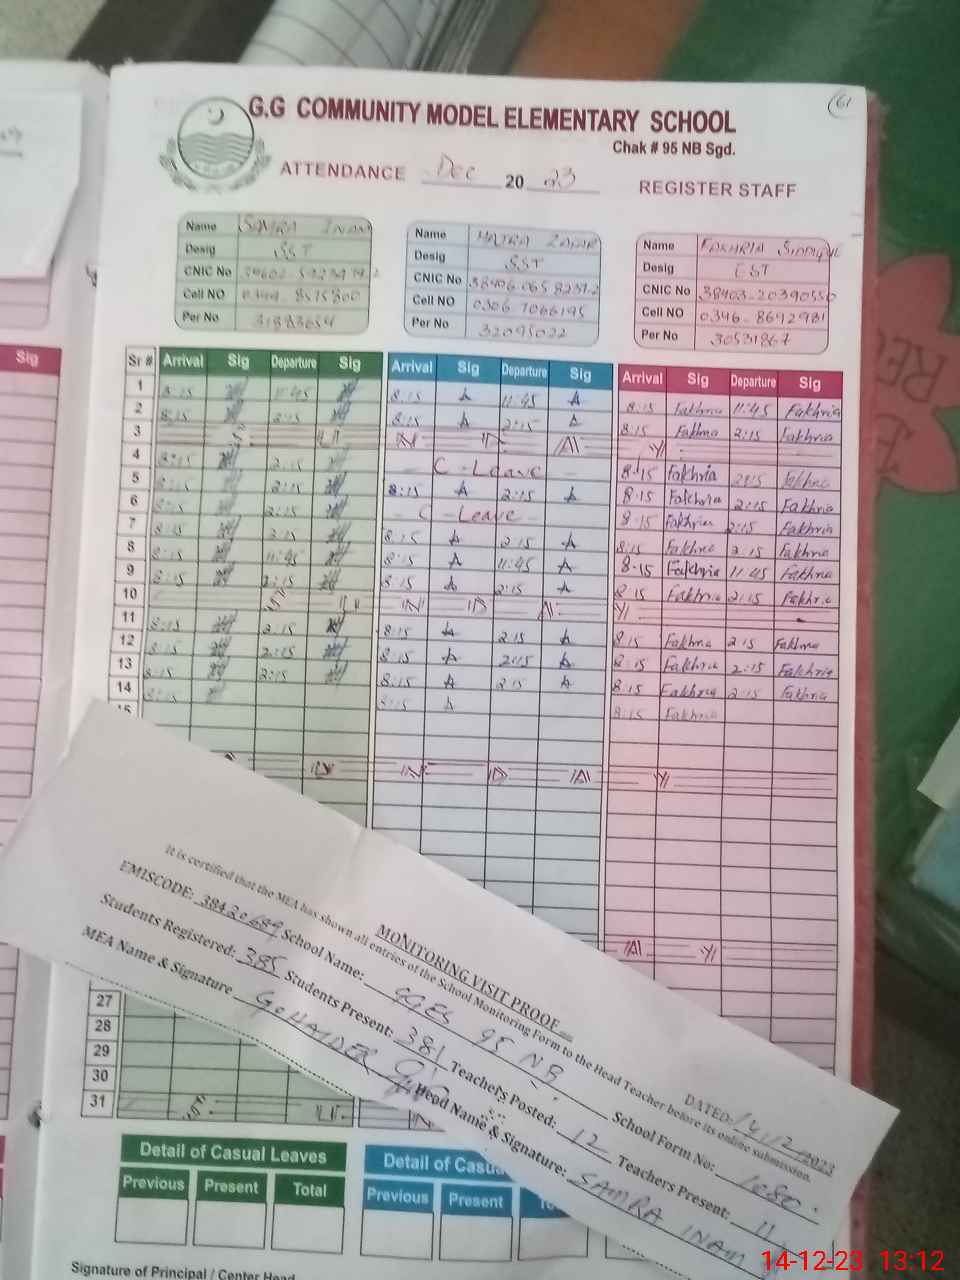 61
G.G COMMUNITY MODEL ELEMENTARY SCHOOL
Chak # 95 NB Sgd.
ATTENDANCE Dec 20 23 REGISTER STAFF
Name SAMRA INAM
Desig SST
CNIC No
Cell NO 0349-8575800
Per No 31883654
Name HAJRA ZAFAR
Desig SST
CNIC No
Cell NO 0306 7066195
Per No 32095022
Name FAKHRIA SIDDIQUE
Desig EST
CNIC No 38403-20390550
Cell NO 0346-8692981
Per No 30531867
Sig
Sr # Arrival Sig Departure Sig Arrival Sig Departure Sig Arrival Sig Departure Sig
1 8:15 11:45 8:15 A 11:45 A 8:15 Fakhria 11:45 Fakhria
2 8:15 2:15 8:15 A 2:15 A 8:15 Fakhria 2:15 Fakhria
3 S U N D A Y
4 8:15 2:15 C-Leave 8:15 Fakhria 2:15 Fakhria
5 8:15 2:15 8:15 A 2:15 A 8:15 Fakhria 2:15 Fakhria
6 8:15 2:15 C-Leave 8:15 Fakhria 2:15 Fakhria
7 8:15 2:15 8:15 A 2:15 A 8:15 Fakhria 2:15 Fakhria
8 8:15 11:45 8:15 A 11:45 A 8:15 Fakhria 11:45 Fakhria
9 8:15 2:15 8:15 A 2:15 A 8:15 Fakhria 2:15 Fakhria
10 S U N D A Y
11 8:15 2:15 8:15 A 2:15 A 8:15 Fakhria 2:15 Fakhria
12 8:15 2:15 8:15 A 2:15 A 8:15 Fakhria 2:15 Fakhria
13 8:15 2:15 8:15 A 2:15 A 8:15 Fakhria 2:15 Fakhria
14 8:15 8:15 A 8:15 Fakhria
15
U N D A Y
A Y
MONITORING VISIT PROOF
DATED: 14/12/2023
It is certified that the MEA has shown all entries of the School Monitoring Form to the Head Teacher before its online submission.
EMISCODE: 38420689 School Name: GGES 95 NB School Form No: 1080
Students Registered: 385 Students Present: 381 Teachers Posted: 12 Teachers Present: 11
MEA Name & Signature G. HAIDER Head Name & Signature: SAMRA INAM
27
28
29
30
31 S U N
Detail of Casual Leaves
Previous Present Total
Detail of Casu
Previous Present To
Signature of Principal / Center Head
14-12-23 13:12